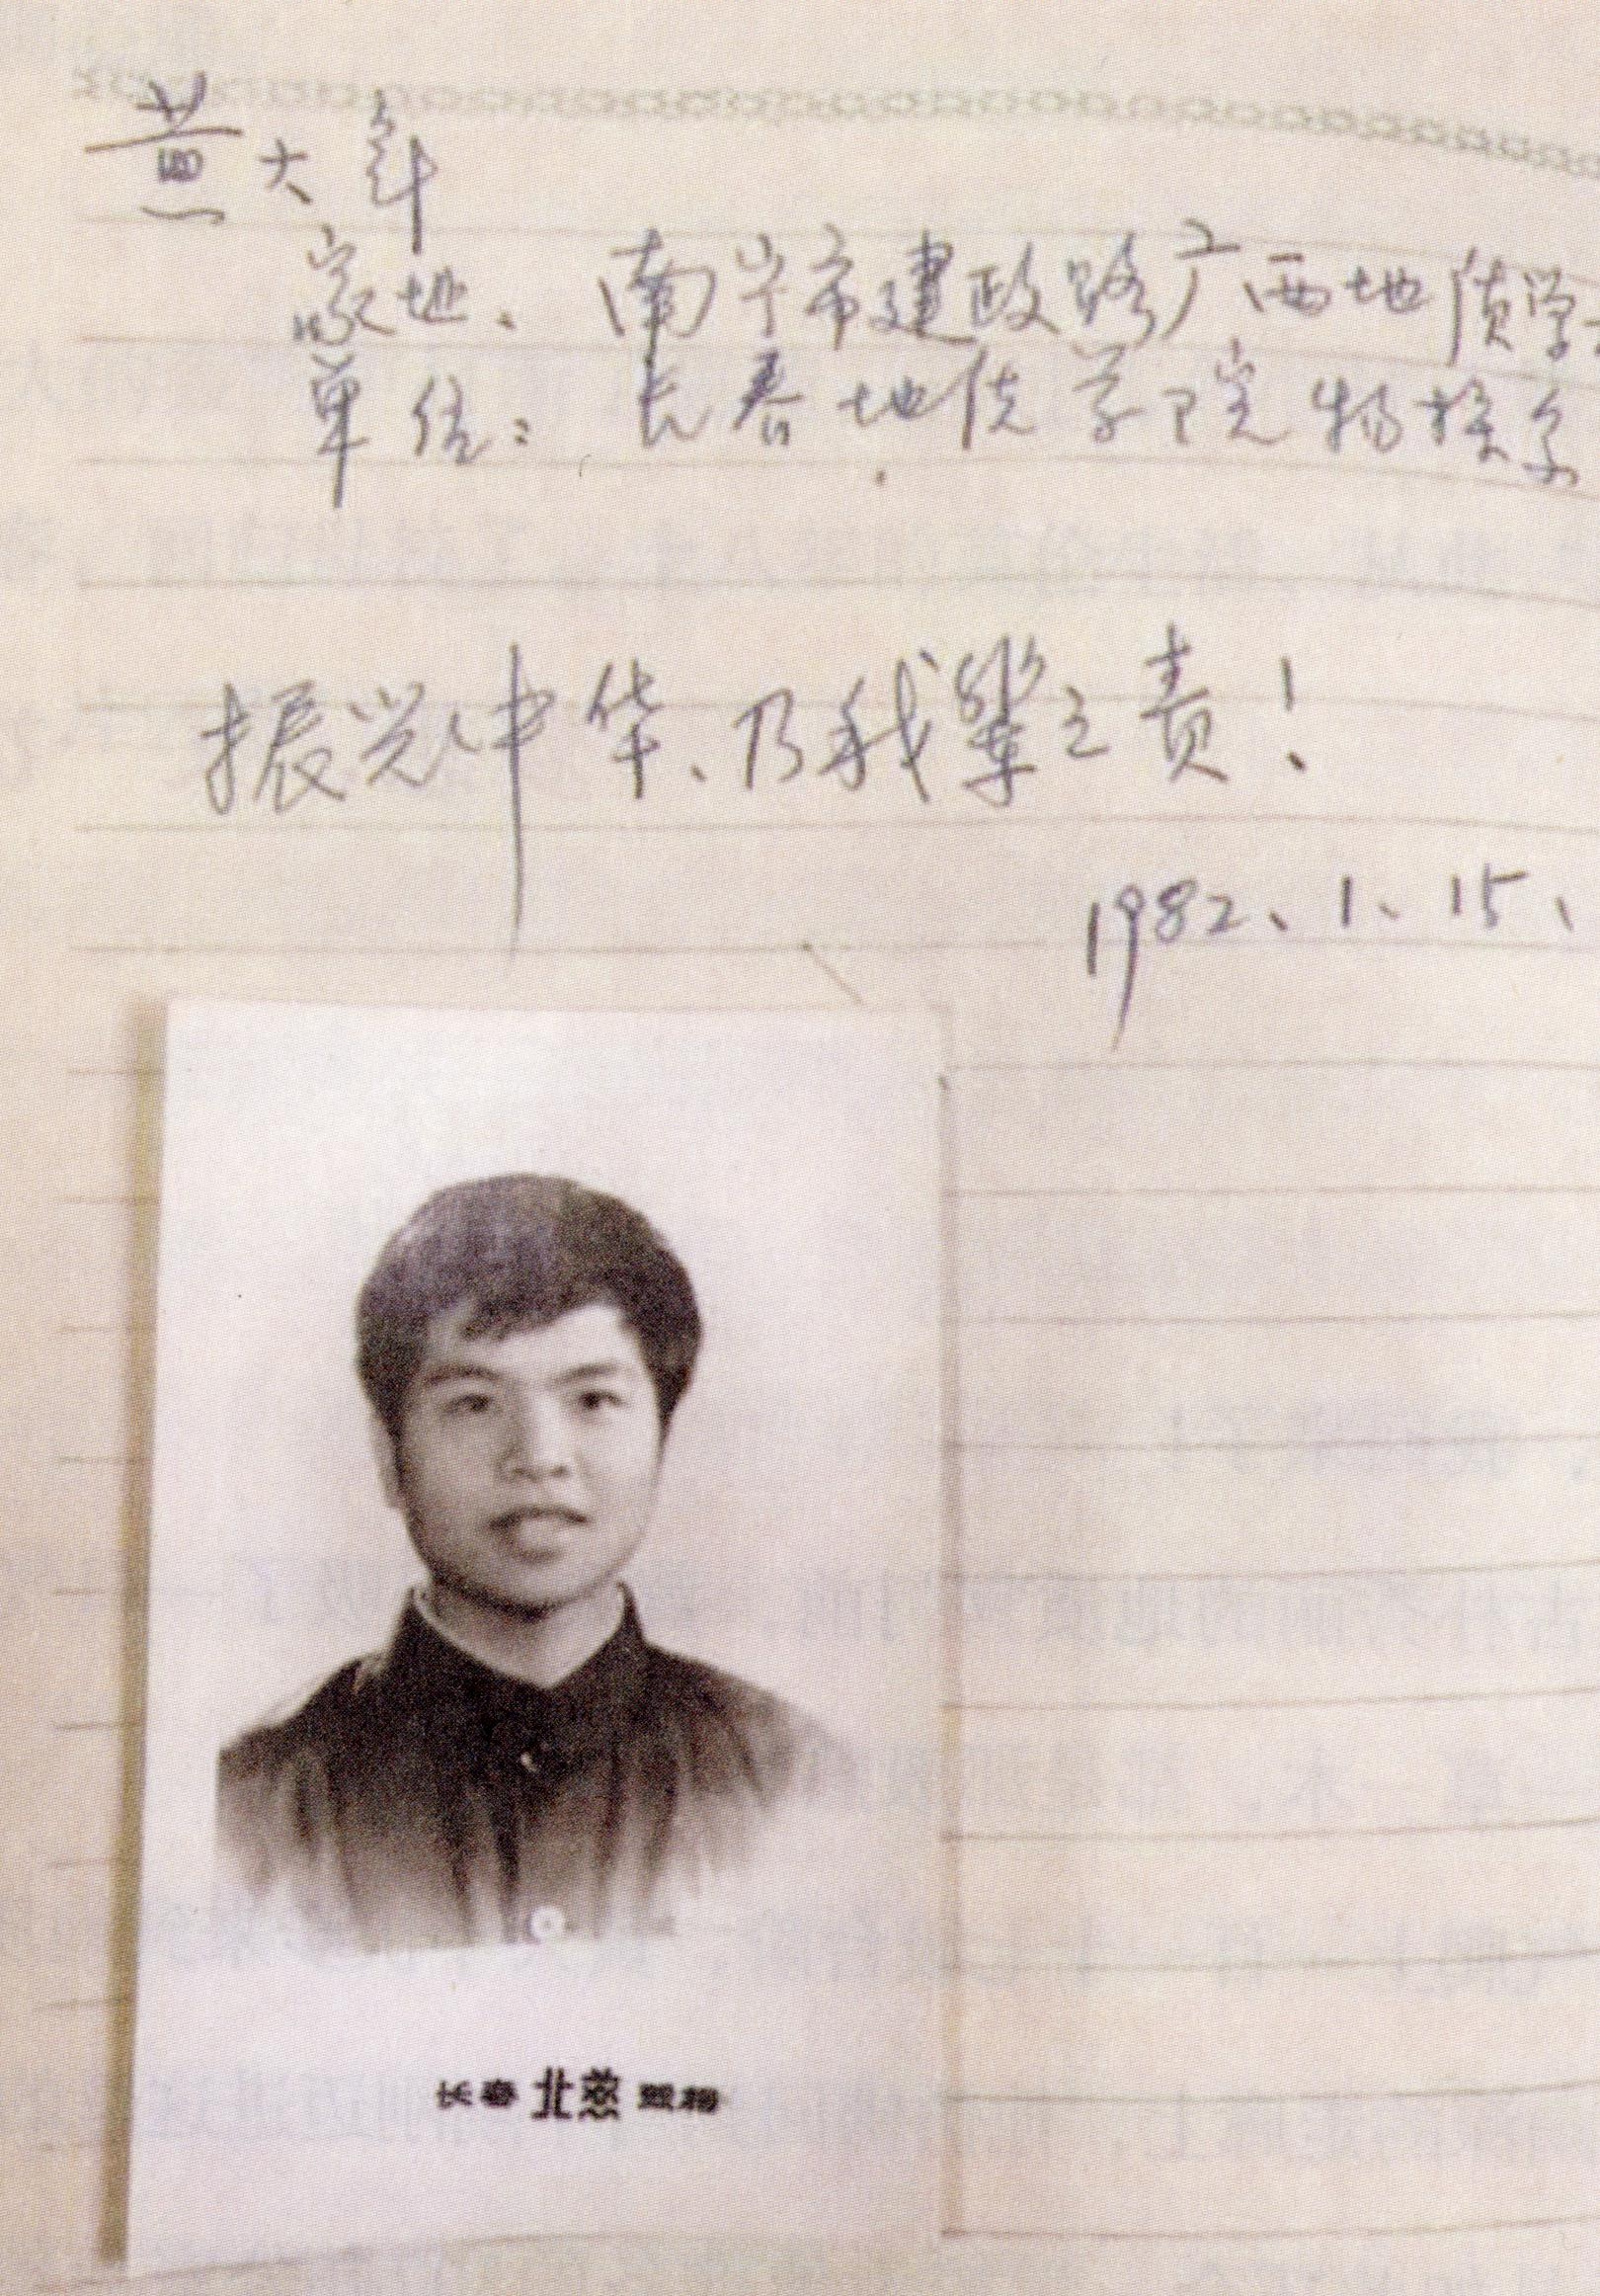 黄大年
家址、南宁市建政路广西地质学
单位：长春地质学院物探系
振兴中华、乃我辈之责！
1982、1、15、
长春 北羢 照相